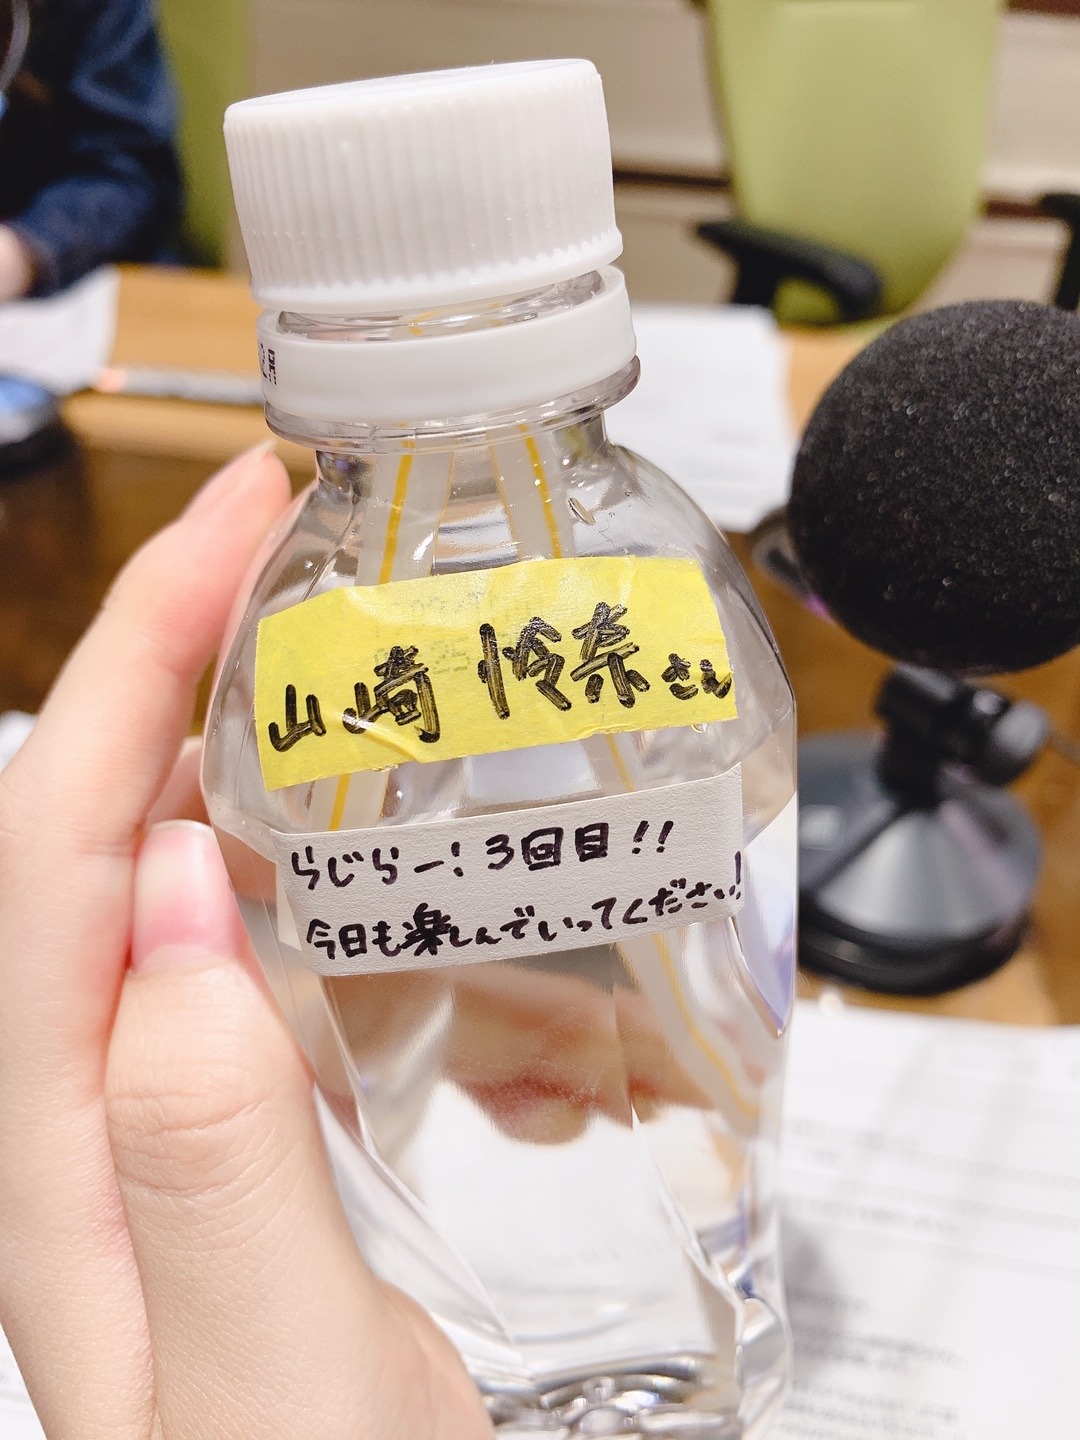 山崎 怜奈さん
らじらー！3回目！！
今日も楽しんでいってください！